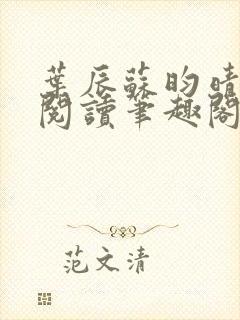 葉辰蘇昀晴
閱讀筆趣閣
范文清